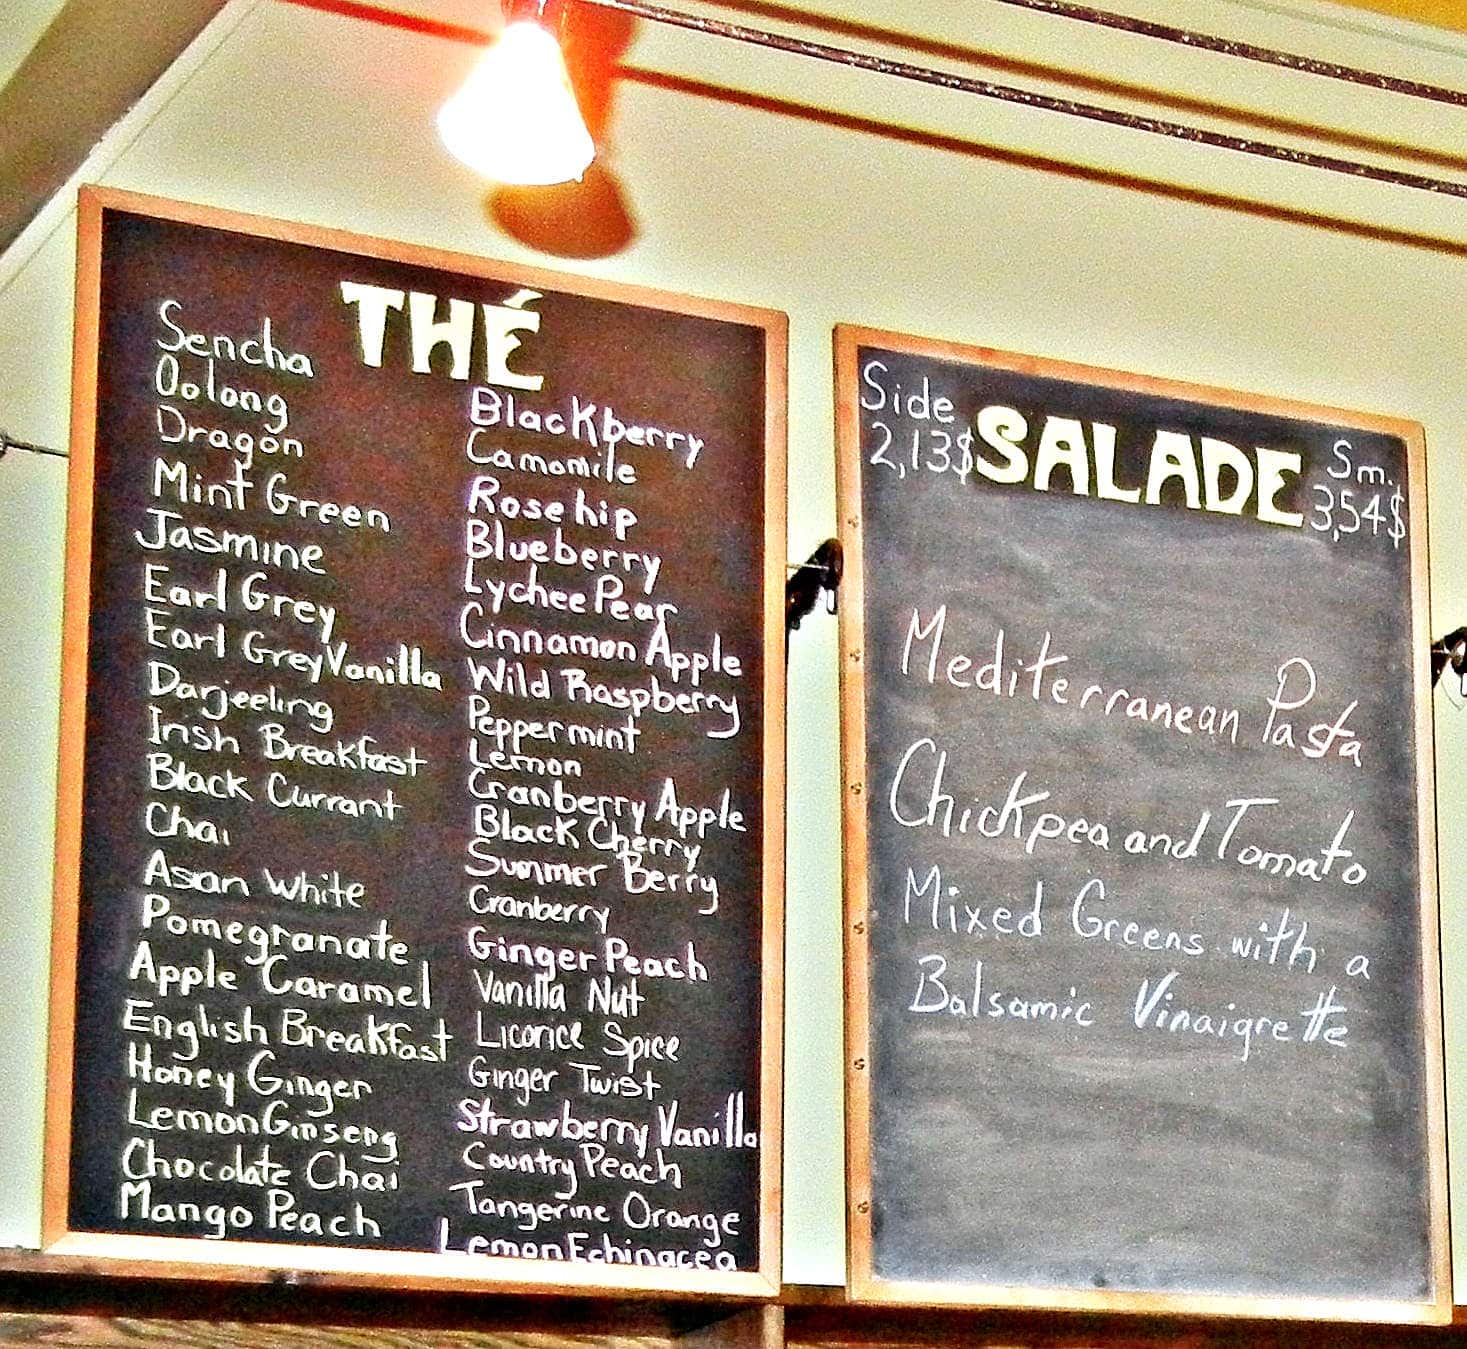 THÉ
Sencha
Oolong
Dragon
Mint Green
Jasmine
Earl Grey
Earl Grey Vanilla
Darjeeling
Irish Breakfast
Black Currant
Chai
Asian White
Pomegranate
Apple Caramel
English Breakfast
Honey Ginger
Lemon Ginseng
Chocolate Chai
Mango Peach
Blackberry
Camomile
Rosehip
Blueberry
Lychee Pear
Cinnamon Apple
Wild Raspberry
Peppermint
Lemon
Cranberry Apple
Black Cherry
Summer Berry
Cranberry
Ginger Peach
Vanilla Nut
Licorice Spice
Ginger Twist
Strawberry Vanilla
Country Peach
Tangerine Orange
Lemon Echinacea
SALADE
Side
2,13$
Sm.
3,54$
Mediterranean Pasta
Chickpea and Tomato
Mixed Greens with a
Balsamic Vinaigrette